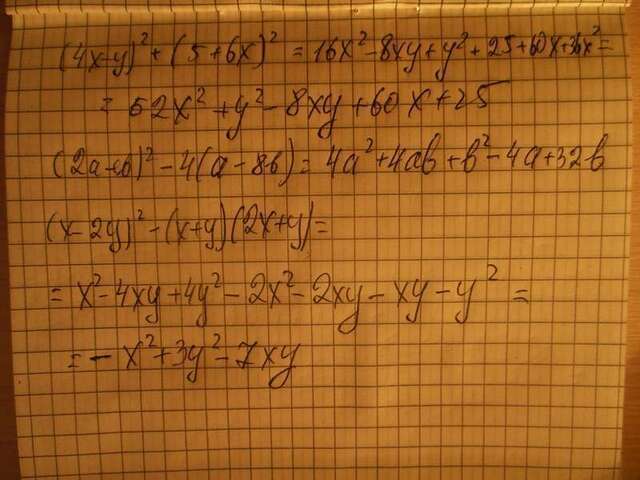 (4x-y)² + (5+6x)² = 16x²-8xy+y²+25+60x+36x²=
= 52x²+y²-8xy+60x+25
(2a+b)²-4(a-8b)= 4a²+4ab+b²-4a+32b
(x-2y)²-(x+y)(2x+y)=
= x²-4xy+4y²-2x²-2xy-xy-y² =
= -x²+3y²-7xy